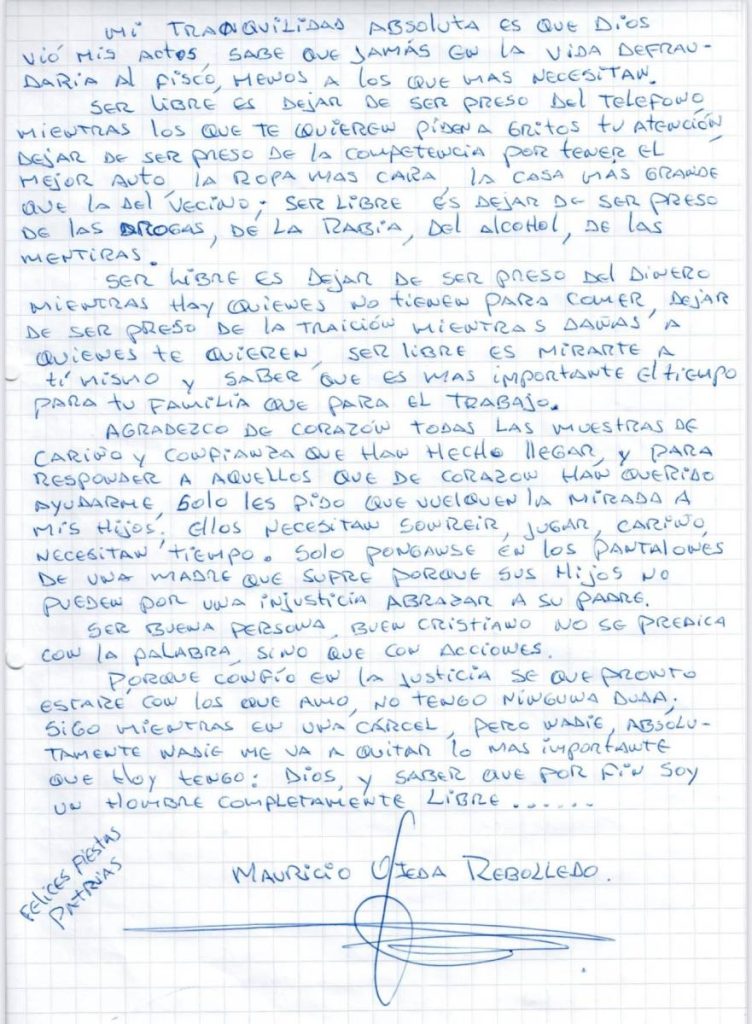 MI TRANQUILIDAD ABSOLUTA ES QUE DIOS
VIÓ MIS ACTOS, SABE QUE JAMÁS EN LA VIDA DEFRAU-
DARIA AL FISCO, MENOS A LOS QUE MAS NECESITAN.
SER LIBRE ES DEJAR DE SER PRESO DEL TELEFONO
MIENTRAS LOS QUE TE QUIEREN PIDEN A GRITOS TU ATENCIÓN,
DEJAR DE SER PRESO DE LA COMPETENCIA POR TENER EL
MEJOR AUTO, LA ROPA MAS CARA, LA CASA MÁS GRANDE
QUE LA DEL VECINO; SER LIBRE ES DEJAR DE SER PRESO
DE LAS DROGAS, DE LA RABIA, DEL ALCOHOL, DE LAS
MENTIRAS.
SER LIBRE ES DEJAR DE SER PRESO DEL DINERO
MIENTRAS HAY QUIENES NO TIENEN PARA COMER, DEJAR
DE SER PRESO DE LA TRAICIÓN MIENTRAS DAÑAS A
QUIENES TE QUIEREN, SER LIBRE ES MIRARTE A
TÍ MISMO Y SABER QUE ES MAS IMPORTANTE EL TIEMPO
PARA TU FAMILIA QUE PARA EL TRABAJO.
AGRADEZCO DE CORAZÓN TODAS LAS MUESTRAS DE
CARIÑO Y CONFIANZA QUE HAN HECHO LLEGAR, Y PARA
RESPONDER A AQUELLOS QUE DE CORAZON HAN QUERIDO
AYUDARME, SOLO LES PIDO QUE VUELQUEN LA MIRADA A
MIS HIJOS, ELLOS NECESITAN SONREIR, JUGAR, CARIÑO,
NECESITAN TIEMPO. SOLO PONGANSE EN LOS PANTALONES
DE UNA MADRE QUE SUFRE PORQUE SUS HIJOS NO
PUEDEN POR UNA INJUSTICIA ABRAZAR A SU PADRE.
SER BUENA PERSONA, BUEN CRISTIANO NO SE PREDICA
CON LA PALABRA, SINO QUE CON ACCIONES.
PORQUE CONFÍO EN LA JUSTICIA SE QUE PRONTO
ESTARÉ CON LOS QUE AMO, NO TENGO NINGUNA DUDA.
SIGO MIENTRAS EN UNA CÁRCEL, PERO NADIE, ABSOLU-
TAMENTE NADIE ME VA A QUITAR LO MAS IMPORTANTE
QUE HOY TENGO: DIOS, Y SABER QUE POR FIN SOY
UN HOMBRE COMPLETAMENTE LIBRE......
FELICES FIESTAS
PATRIAS
MAURICIO OJEDA REBOLLEDO.